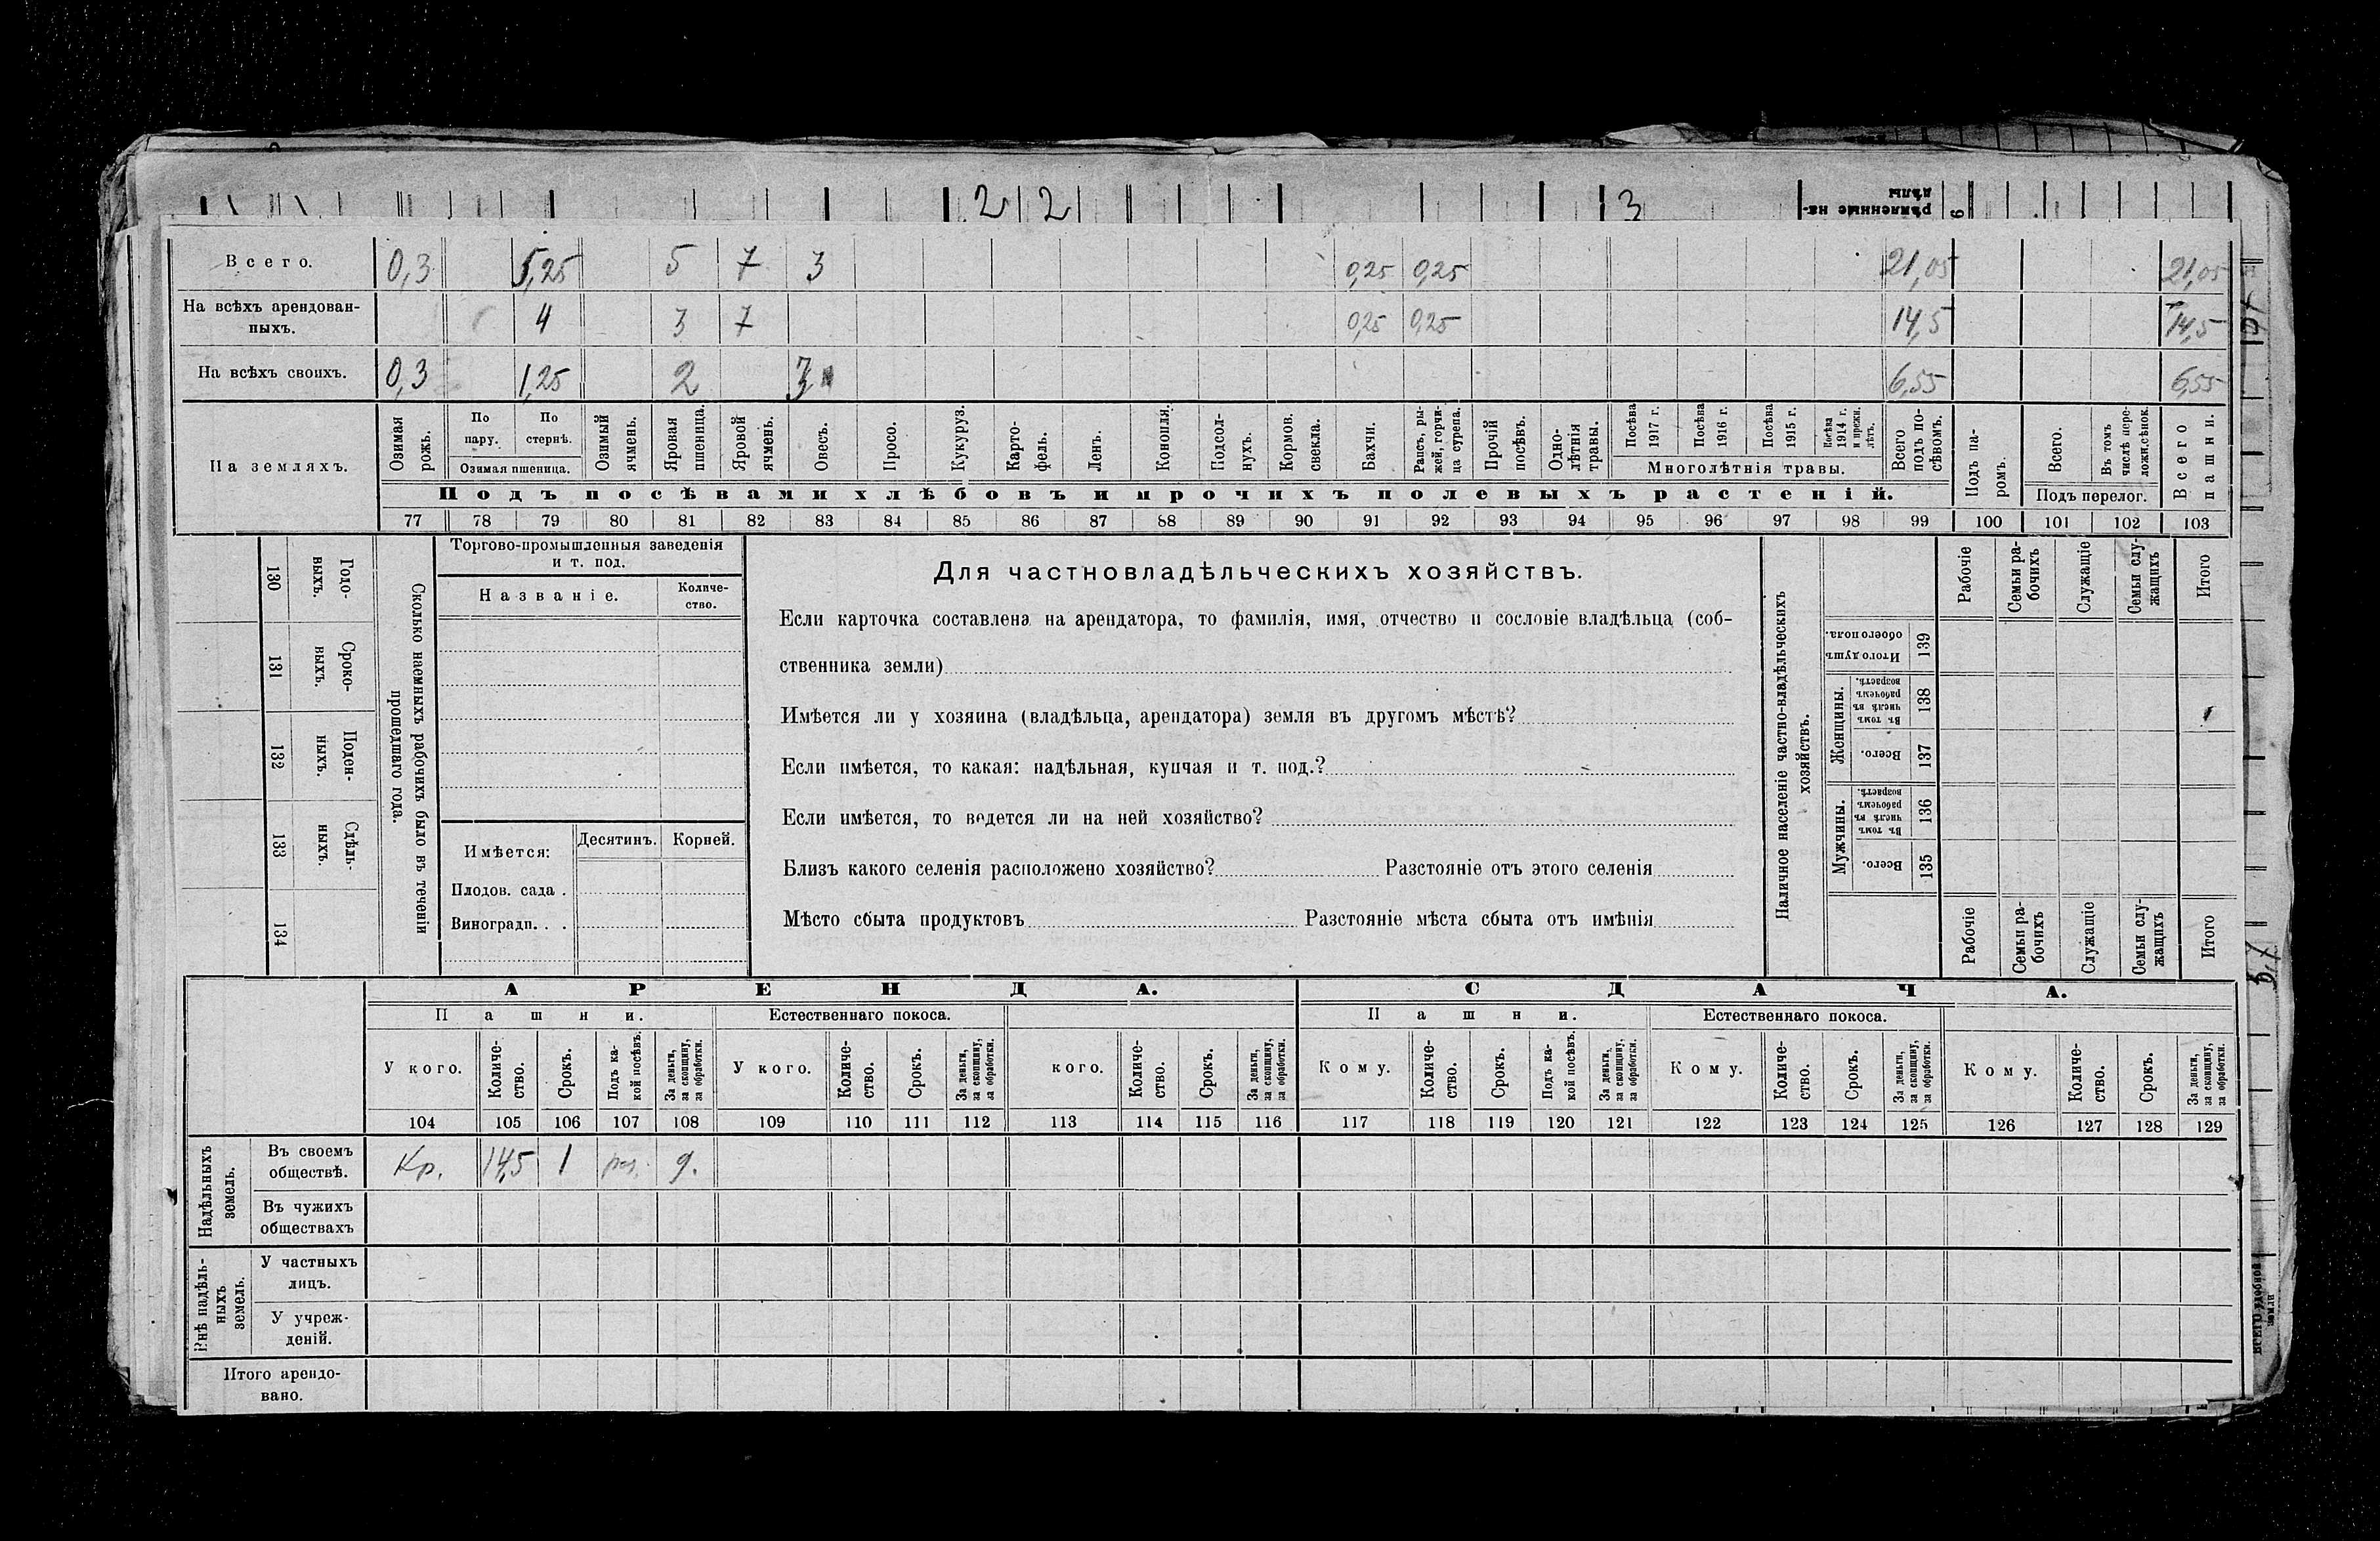 2 2 3 рѣленные на-
дѣлы 6
Всего. 0,3 5,25 5 7 3 0,25 0,25 21,05 21,05
На всѣхъ арендован-
ныхъ. 4 3 7 0,25 0,25 14,5 14,5
На всѣхъ своихъ. 0,3 1,25 2 3 6,55 6,55
На земляхъ.
Озимая рожь.
По пару.
По стернѣ.
Озимая пшеница.
Озимый ячмень.
Яровая пшеница.
Яровой ячмень.
Овесъ.
Просо.
Кукуруз.
Карто-
фель.
Ленъ.
Конопля.
Подсол-
нухъ.
Кормов.
свекла.
Бахчи.
Рапсъ, ры-
жей, горчи-
ца сурепа.
Прочій
посѣвъ.
Одно-
лѣтнія
травы.
Посѣва
1917 г.
Посѣва
1916 г.
Посѣва
1915 г.
Посѣва
1914 г.
и прежн.
лѣтъ.
Многолѣтнія травы.
Всего
подъ по-
сѣвомъ.
Подъ па-
ромъ.
Всего.
Въ томъ
числѣ пере-
ложн.сѣнок.
Подъ перелог.
Всего
пашни.
Подъ посѣвами хлѣбовъ и прочихъ полевыхъ растеній.
77 78 79 80 81 82 83 84 85 86 87 88 89 90 91 92 93 94 95 96 97 98 99 100 101 102 103
130 Годо-
ныхъ.
131 Сроко-
ныхъ.
132 Поден-
ныхъ.
133 Сдѣль-
ныхъ.
134
Сколько наемныхъ рабочихъ было въ теченіи
прошедшаго года.
Торгово-промышленныя заведенія
и т. под.
Названіе.
Количе-
ство.
Имѣется:
Десятинъ. Корней.
Плодов. сада .
Виноградн. . .
Для частновладѣльческихъ хозяйствъ.
Если карточка составлена на арендатора, то фамилія, имя, отчество и сословіе владѣльца (соб-
ственника земли)
Имѣется ли у хозяина (владѣльца, арендатора) земля въ другомъ мѣстѣ?
Если имѣется, то какая: надѣльная, купчая и т. под.?
Если имѣется, то ведется ли на ней хозяйство?
Близъ какого селенія расположено хозяйство? Разстояніе отъ этого селенія
Мѣсто сбыта продуктовъ Разстояніе мѣста сбыта отъ имѣнія
Наличное населеніе частно-владѣльческихъ
хозяйствъ.
Рабочіе
Семьи ра-
бочихъ
Служащіе
Семьи слу-
жащихъ
Итого
Итого душъ
обоего пола. 139
Женщины.
Въ томъ
числѣ въ
рабочемъ
возрастѣ. 138
Всего. 137
Мужчины.
Въ томъ
числѣ въ
рабочемъ
возрастѣ. 136
Всего. 135
Рабочіе
Семьи ра-
бочихъ
Служащіе
Семьи слу-
жащихъ
Итого
АРЕНДА. СДАЧА.
Пашни. Естественнаго покоса. Пашни. Естественнаго покоса.
У кого.
Количе-
ство.
Срокъ.
Подъ ка-
кой посѣвъ.
За деньги,
за скопщину,
за обработки.
У кого.
Количе-
ство.
Срокъ.
За деньги,
за скопщину,
за обработки.
кого.
Количе-
ство.
Срокъ.
За деньги,
за скопщину,
за обработки.
Кому.
Количе-
ство.
Срокъ.
Подъ ка-
кой посѣвъ.
За деньги,
за скопщину,
за обработки.
Кому.
Количе-
ство.
Срокъ.
За деньги,
за скопщину,
за обработки.
Кому.
Количе-
ство.
Срокъ.
За деньги,
за скопщину,
за обработки.
104 105 106 107 108 109 110 111 112 113 114 115 116 117 118 119 120 121 122 123 124 125 126 127 128 129
Надѣльныхъ
земель.
Въ своемъ
обществѣ. Кр. 14,5 1 раз. д.
Въ чужихъ
обществахъ
Внѣ надѣль-
ныхъ
земель.
У частныхъ
лицъ.
У учреж-
деній.
Итого арендо-
вано.
всего удобной
земли